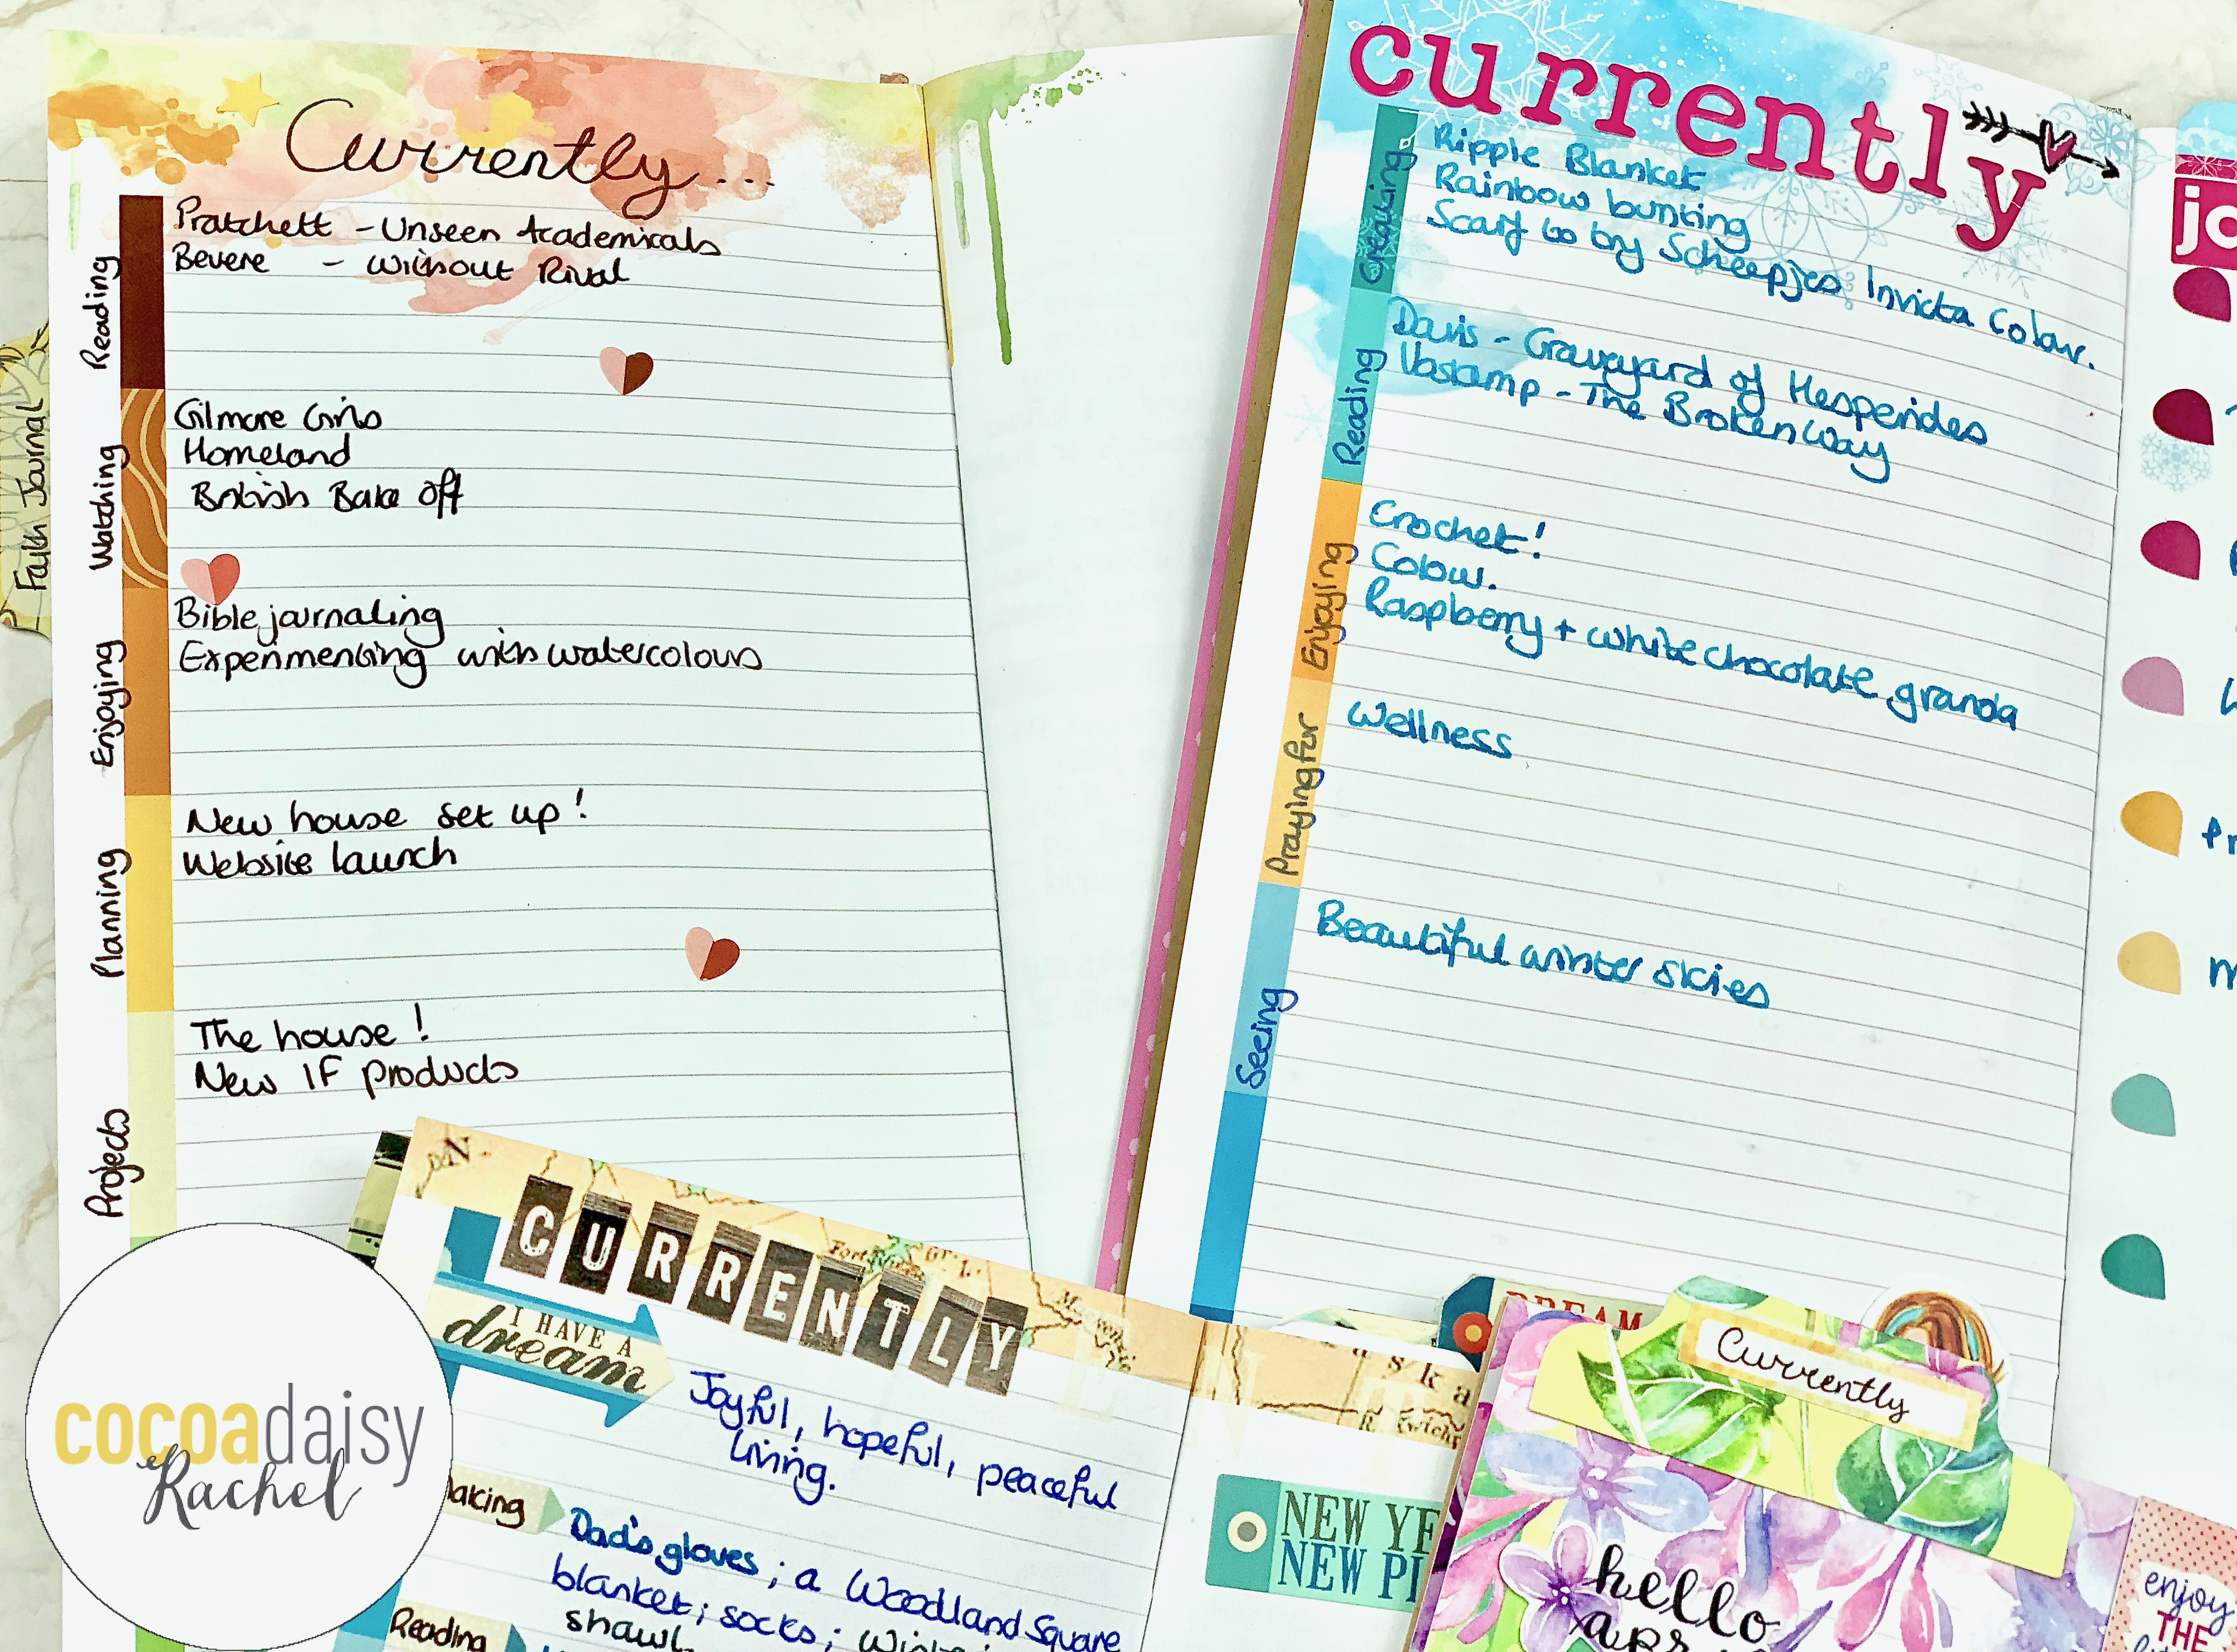 Currently...
Reading
Pratchett - Unseen Academicals
Bevere - Without Rival
Watching
Gilmore Girls
Homeland
British Bake Off
Enjoying
Bible journaling
Experimenting with watercolours
Planning
New house set up!
Website launch
Projects
The house!
New IF products
Faith Journal
currently
Creaking
Ripple Blanket
Rainbow bunting
Scarf to try Scheepjes Invicta Colour.
Reading
Davis - Graveyard of Hesperides
Voskamp - The Broken Way
Enjoying
Crochet!
Colour.
Raspberry + white chocolate granola
Praying for
Wellness
Seeing
Beautiful winter skies
jo
CURRENTLY
I HAVE A
dream
Joyful, hopeful, peaceful
living.
aking
Dad's gloves; a Woodland Square
blanket; socks;
shawl
Reading
DREAM
aska
NEW YE
NEW PI
Currently
hello
enjoy
THE
cocoadaisy
Rachel